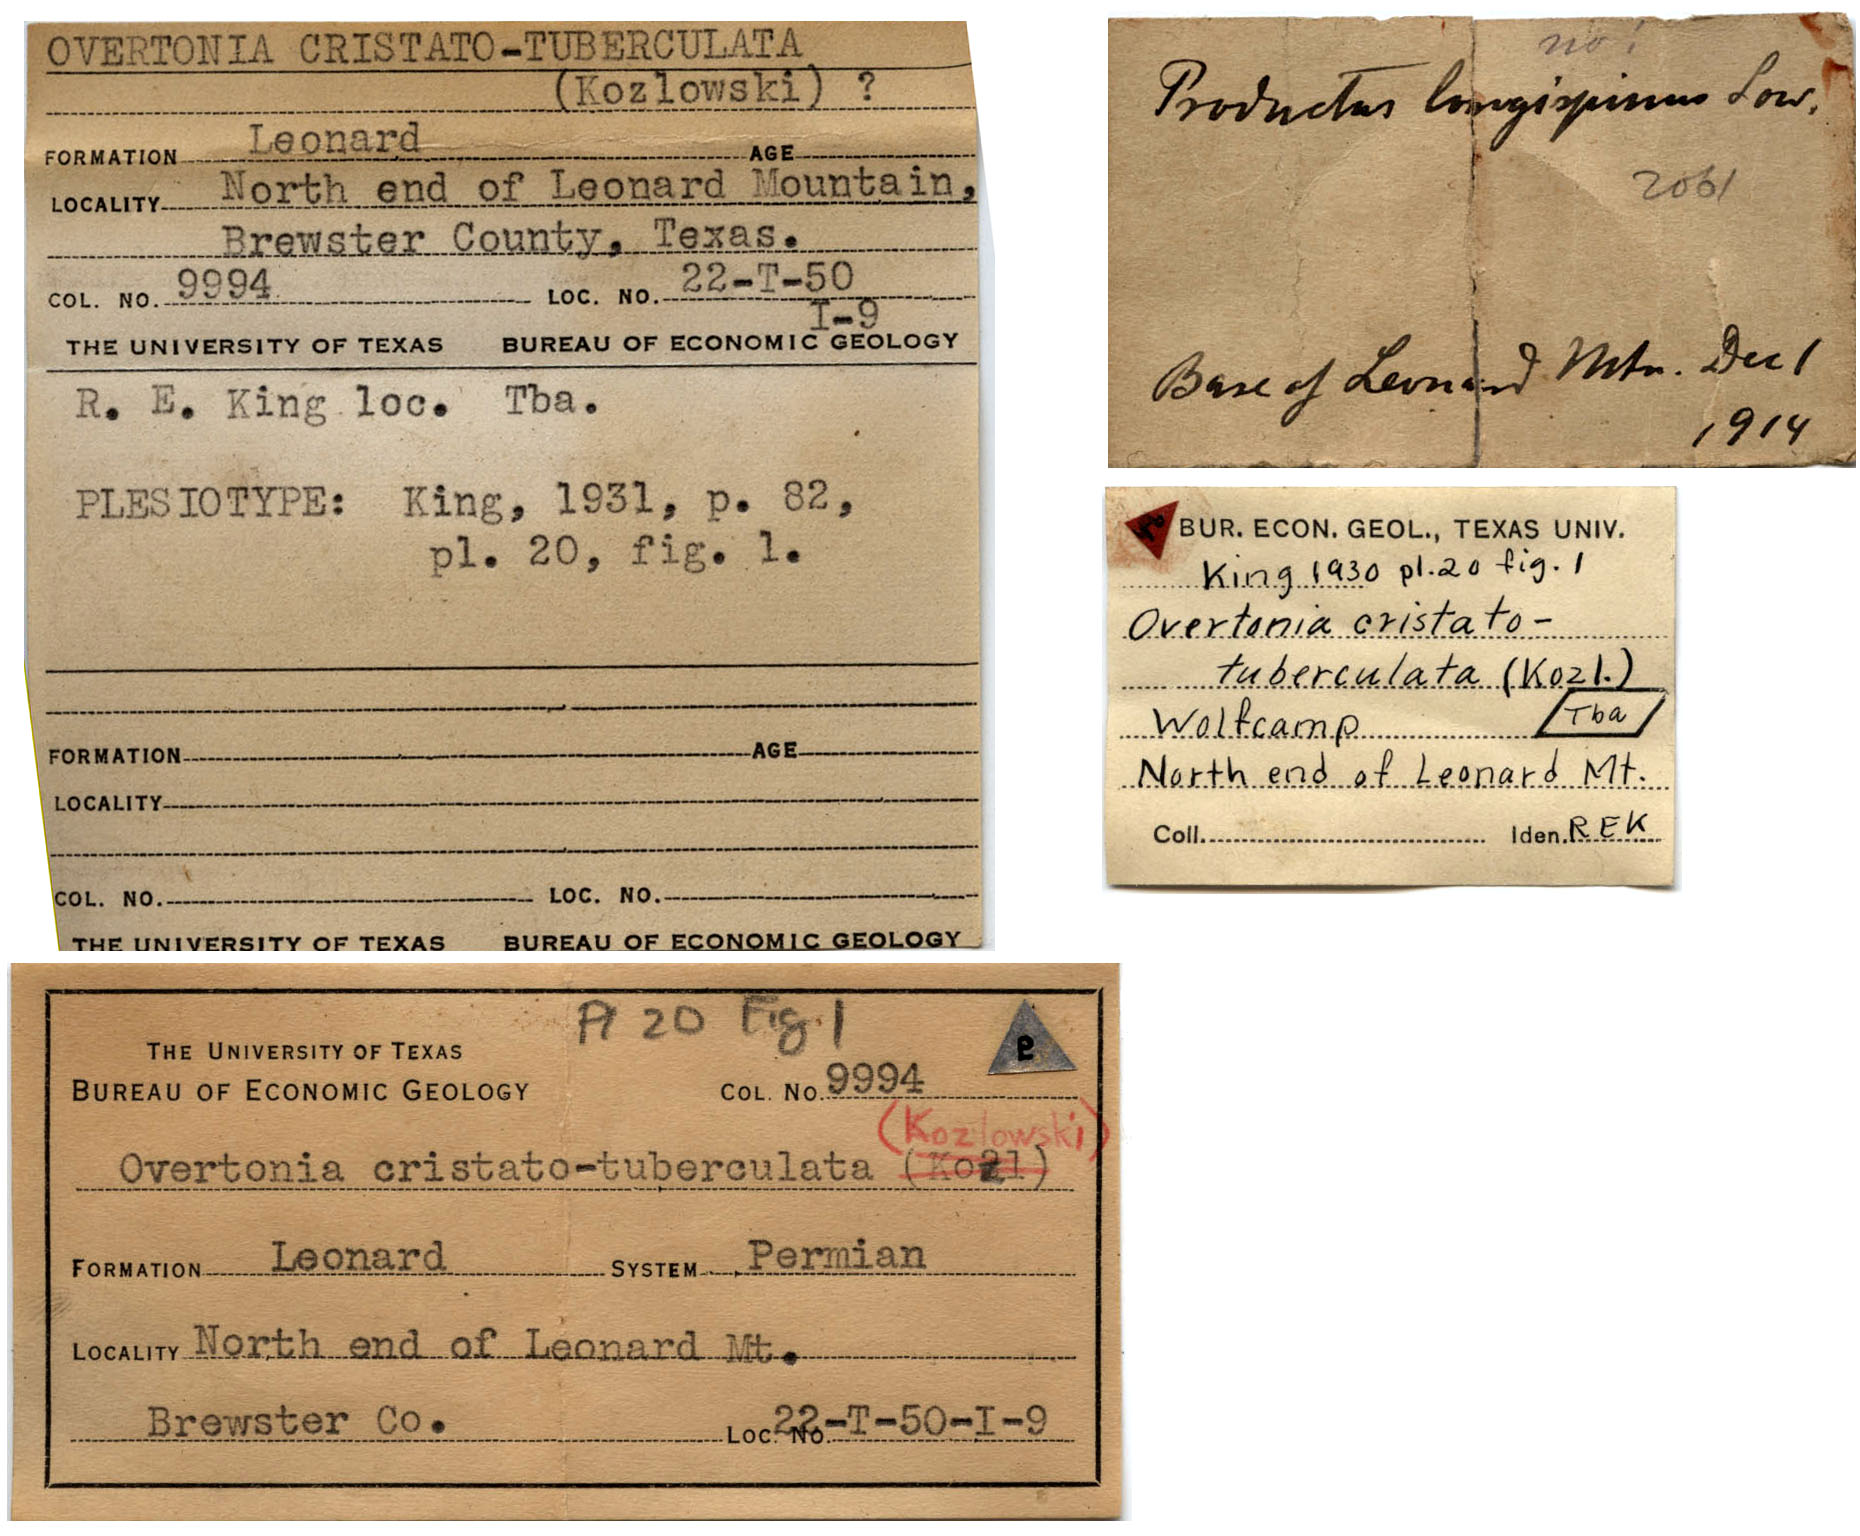 OVERTONIA CRISTATO-TUBERCULATA
(Kozlowski) ?
FORMATION Leonard AGE
LOCALITY North end of Leonard Mountain,
Brewster County, Texas.
COL. NO. 9994 LOC. NO. 22-T-50
I-9
THE UNIVERSITY OF TEXAS BUREAU OF ECONOMIC GEOLOGY
R. E. King loc. Tba.
PLESIOTYPE: King, 1931, p. 82,
pl. 20, fig. 1.
FORMATION AGE
LOCALITY
COL. NO. LOC. NO.
THE UNIVERSITY OF TEXAS BUREAU OF ECONOMIC GEOLOGY
no!
Productus longispinus Sow.
2061
Base of Leonard Mtn. Dec 1
1914
BUR. ECON. GEOL., TEXAS UNIV.
King 1930 pl.20 fig. 1
Overtonia cristato-
tuberculata (Kozl.)
Wolfcamp Tba
North end of Leonard Mt.
Coll. Iden. REK
Pl 20 Fig. 1
THE UNIVERSITY OF TEXAS
BUREAU OF ECONOMIC GEOLOGY COL. NO. 9994
(Kozlowski)
Overtonia cristato-tuberculata (Kozl)
FORMATION Leonard SYSTEM Permian
LOCALITY North end of Leonard Mt.
Brewster Co. LOC. NO. 22-T-50-I-9